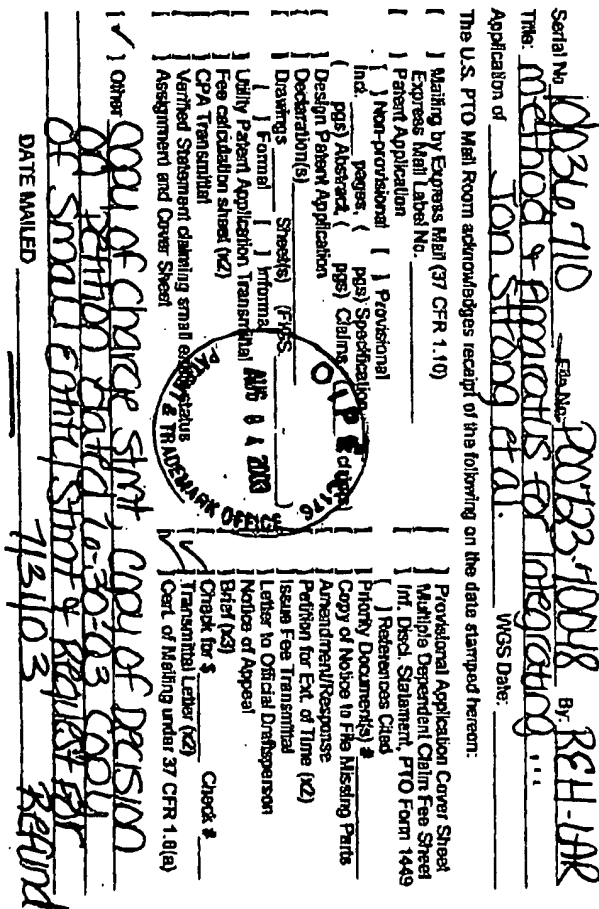 Serial No. 10/036,710 File No. P00723.70048 By: REH-LAR
Title: Method & Apparatus for Integrating ...
Application of Jon Strong et al. WGS Date:
The U.S. PTO Mail Room acknowledges receipt of the following on the date stamped hereon:
[ ] Mailing by Express Mail (37 CFR 1.10)
Express Mail Label No.
[ ] Patent Application
[ ] Non-provisional [ ] Provisional
Incl. pages, ( pgs) Specification
( pgs) Abstract, ( pgs) Claims, (
[ ] Design Patent Application
[ ] Declaration(s)
[ ] Drawings Sheet(s) (FIGS. )
[ ] Formal [ ] Informal
[ ] Utility Patent Application Transmittal
[ ] Fee calculation sheet (x2)
[ ] CPA Transmittal
[ ] Verified Statement claiming small entity status
[ ] Assignment and Cover Sheet
[ ] Provisional Application Cover Sheet
[ ] Multiple Dependent Claim Fee Sheet
[ ] Inf. Discl. Statement, PTO Form 1449
( ) References Cited
[ ] Priority Document(s) #
[ ] Copy of Notice to File Missing Parts
[ ] Amendment/Response
[ ] Petition for Ext. of Time (x2)
[ ] Issue Fee Transmittal
[ ] Letter to Official Draftsperson
[ ] Notice of Appeal
[ ] Brief (x3)
[ ] Check for $ Check #
[✓] Transmittal Letter (x2)
[✓] Cert. of Mailing under 37 CFR 1.8(a)
OIPE
AUG 04 2003
PATENT & TRADEMARK OFFICE
[✓] Other Copy of charge Stmt. Copy of Decision
on Petition dated 6-30-03 Copy
of Small Entity Stmt & Request for
Refund
DATE MAILED 7/31/03